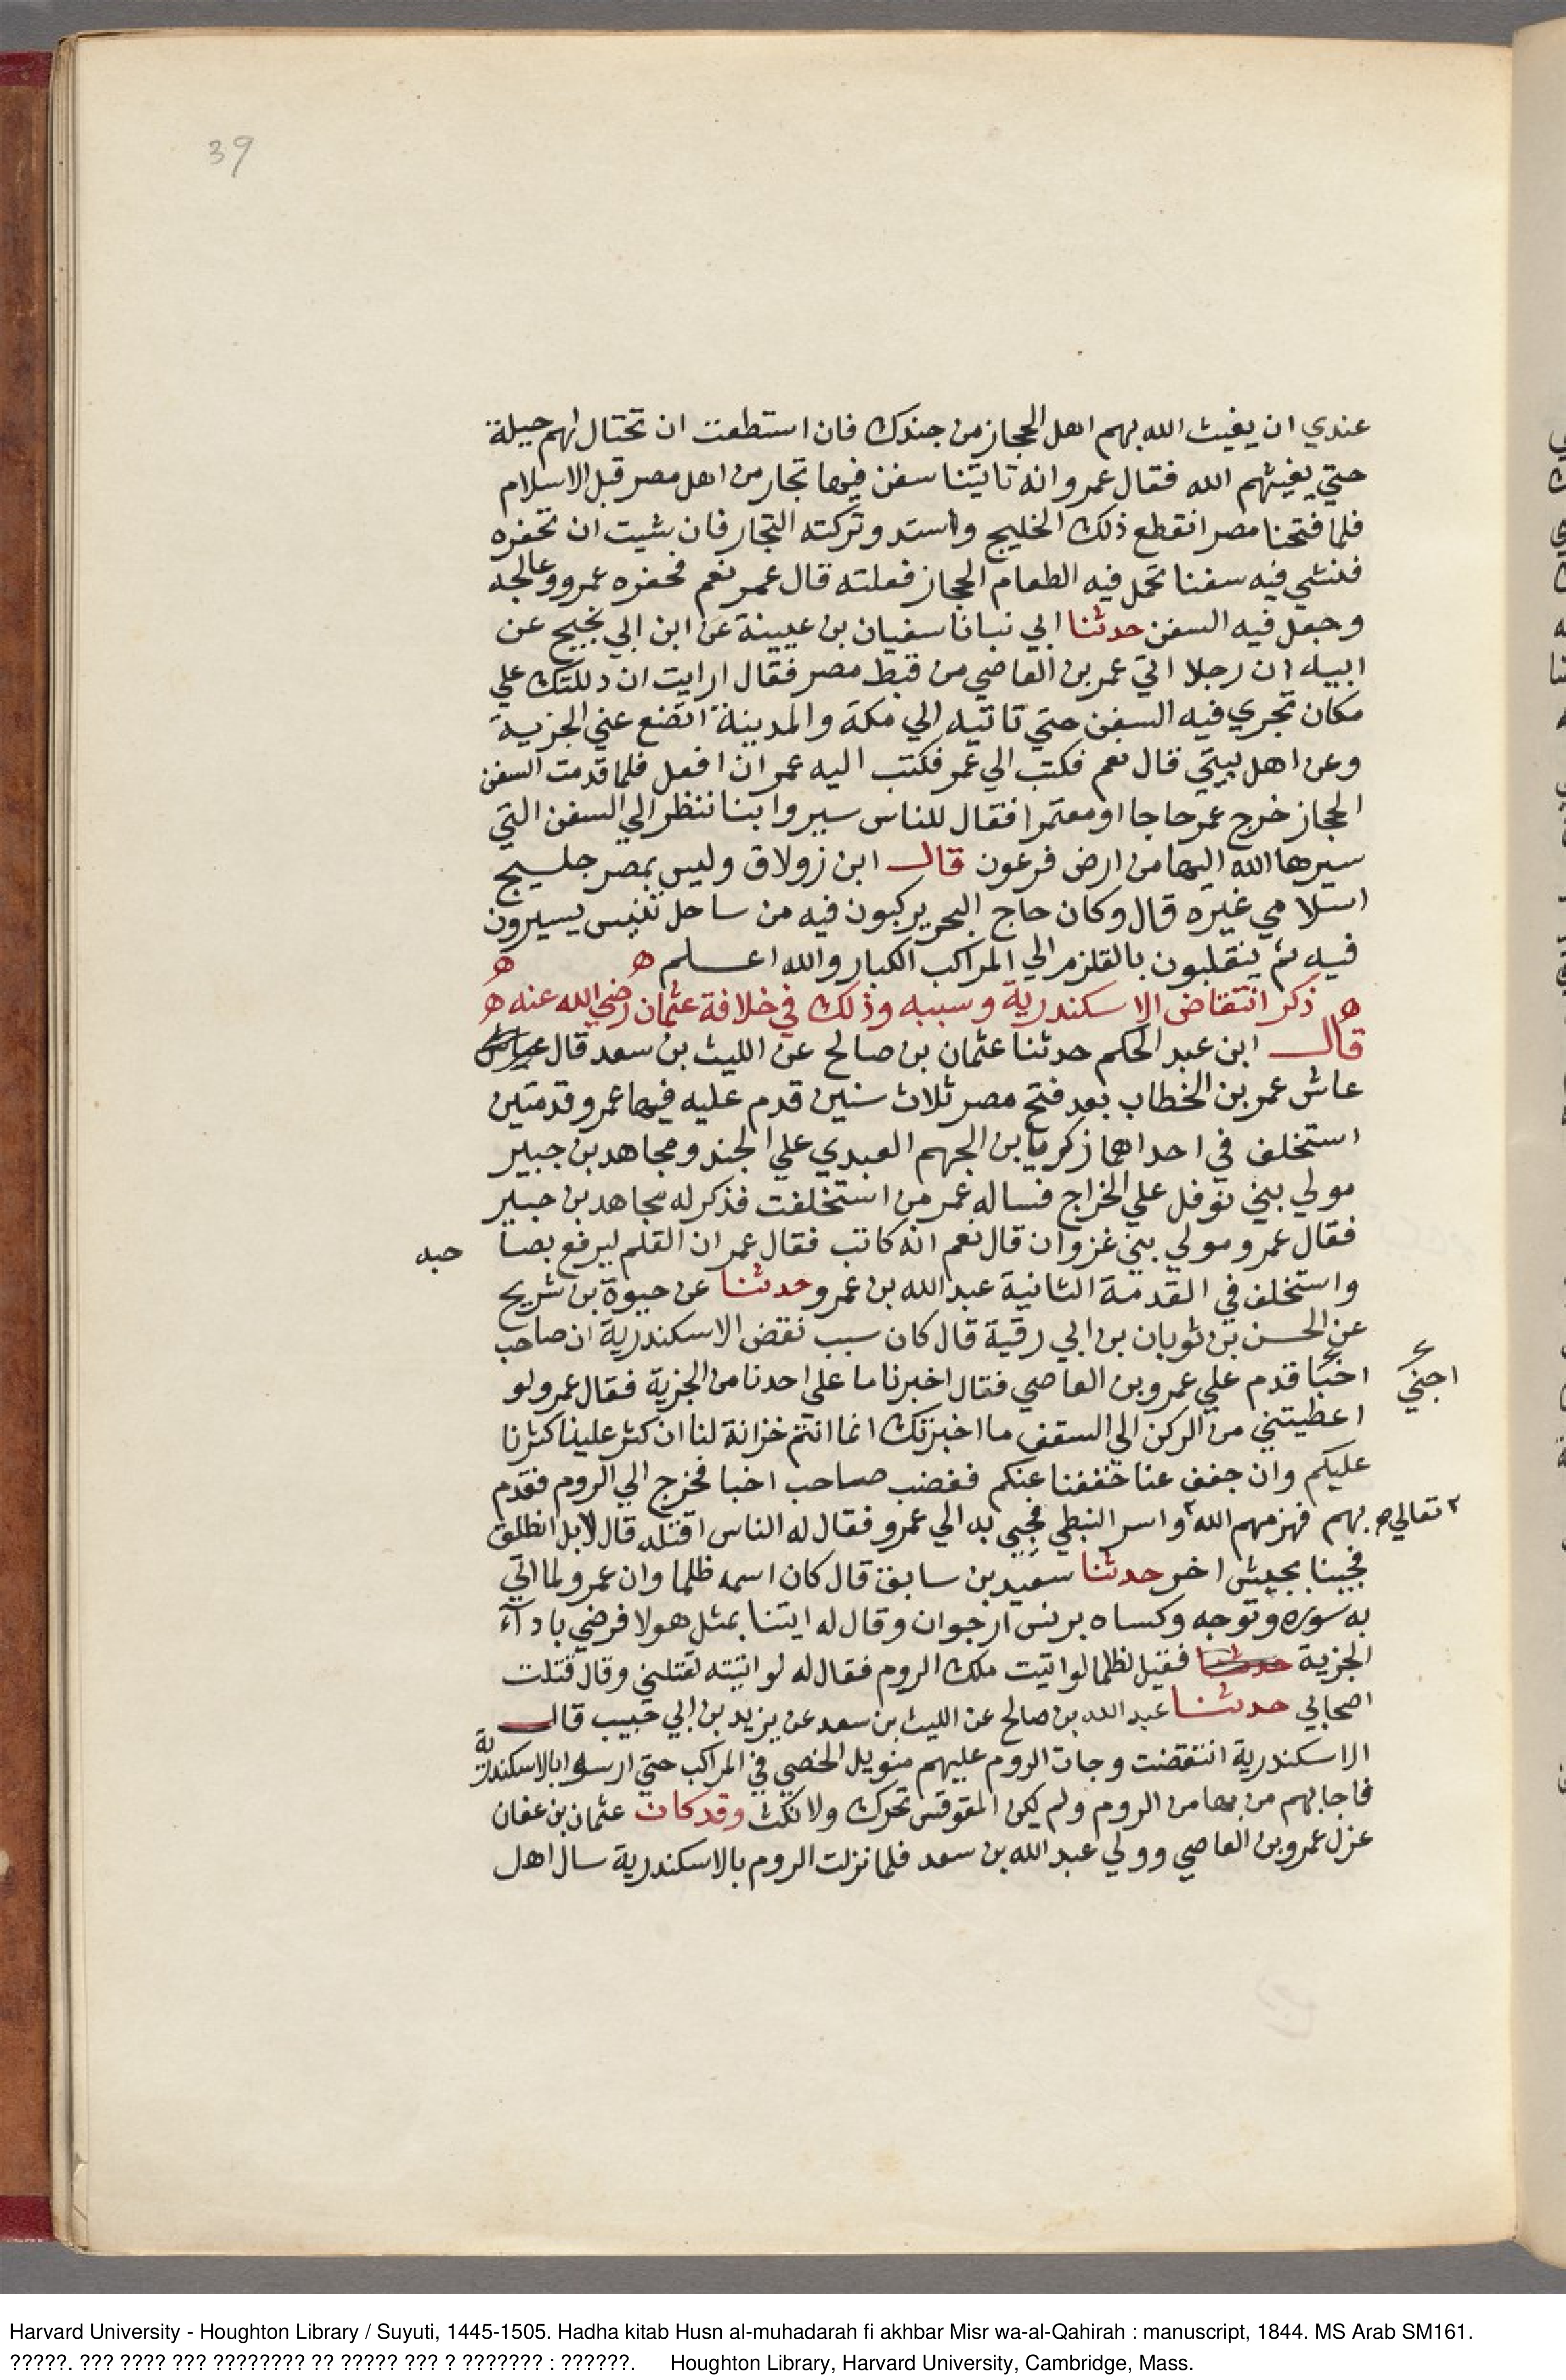 39
عندي ان يغيث الله بهم اهل الحجاز من جندك فان استطعت ان تحتال لهم حيلة
حتي يغيثهم الله فقال عمرو انه تاتينا سفن فيها تجار من اهل مصر قبل الاسلام
فلما فتحنا مصر انقطع ذلك الخليج واستد وتركته التجار فان شيت ان تحفره
فننشي فيه سفنا تحمل فيه الطعام الحجاز فعلته قال عمر نعم فحفره عمرو وعالجه
وجعل فيه السفن حدثنا ابي نبانا سفيان بن عيينة عن ابن ابي نجيح عن
ابيه ان رجلا اتي عمر بن العاصي من قبط مصر فقال ارايت ان دللتك علي
مكان تجري فيه السفن حتي تاتيه الي مكة والمدينة اتضع عني الجزية
وعن اهل بيتي قال نعم فكتب الي عمر فكتب اليه عمر ان افعل فلما قدمت السفن
الحجاز خرج عمر حاجا او معتمرا فقال للناس سيروا بنا ننظر الي السفن التي
سيرها الله اليها من ارض فرعون قال ابن زولاق وليس بمصر جليج
اسلامي غيره قال وكان حاج البحر يركبون فيه من ساحل تنيس يسيرون
فيه ثم ينقلبون بالقلزم الي المراكب الكبار والله اعلم ه ه
ه ذكر انتقاض الاسكندرية وسببه وذلك في خلافة عثمان رضي الله عنه ه
قال ابن عبد الحكم حدثنا عثمان بن صالح عن الليث بن سعد قال
عاش عمر بن الخطاب بعد فتح مصر ثلاث سنين قدم عليه فيها عمرو قدمتين
استخلف في احداهما زكريا بن الجهم العبدي علي الجند ومجاهد بن جبير
مولي بني نوفل علي الخراج فساله عمر من استخلفت فذكر له مجاهد بن جبير
فقال عمر ومولي بني غزوان قال نعم انه كاتب فقال عمر ان القلم ليرفع بصا حبه
واستخلف في القدمة الثانية عبد الله بن عمر وحدثنا عن حيوة بن شريح
عن الحسن بن ثوبان بن ابي رقية قال كان سبب نقض الاسكندرية ان صاحب
اخبا قدم علي عمرو بن العاصي فقال اخبرنا ما علي احدنا من الجزية فقال عمرو لو
اجني
اعطيتني من الركن الي السقف ما اخبرتك انما انتم خزانة لنا ان كثر علينا كثرنا
عليكم وان جفف عنا خففنا عنكم فغضب صاحب اخبا فخرج الي الروم فقدم
بهم فهزمهم الله واسر النبطي فجيي به الي عمرو فقال له الناس اقتله قال لا بل انطلق
تعالي
فجينا بجيش اخر حدثنا سعيد بن سابق قال كان اسمه ظلما وان عمرو لما اتي
به سوره وتوجه وكساه برنس ارجوان وقال له ايتنا بمثل هولا فرضي باداء
الجزية حدثنا فقيل لظلما لو اتيت ملك الروم فقال له لو اتيته لقتلني وقال قتلت
اصحابي حدثنا عبد الله بن صالح عن الليث بن سعد عن يزيد بن ابي حبيب قال
الاسكندرية انتقضت وجات الروم عليهم منويل الخصي في المراكب حتي ارسلوا بالاسكندرية
فاجابهم من بها من الروم ولم يكن المقوقس تحرك ولا نكث وقد كان عثمان بن عفان
عزل عمرو بن العاصي وولي عبد الله بن سعد فلما نزلت الروم بالاسكندرية سال اهل
Harvard University - Houghton Library / Suyuti, 1445-1505. Hadha kitab Husn al-muhadarah fi akhbar Misr wa-al-Qahirah : manuscript, 1844. MS Arab SM161.
?????. ??? ???? ??? ???????? ?? ????? ??? ? ??????? : ??????. Houghton Library, Harvard University, Cambridge, Mass.